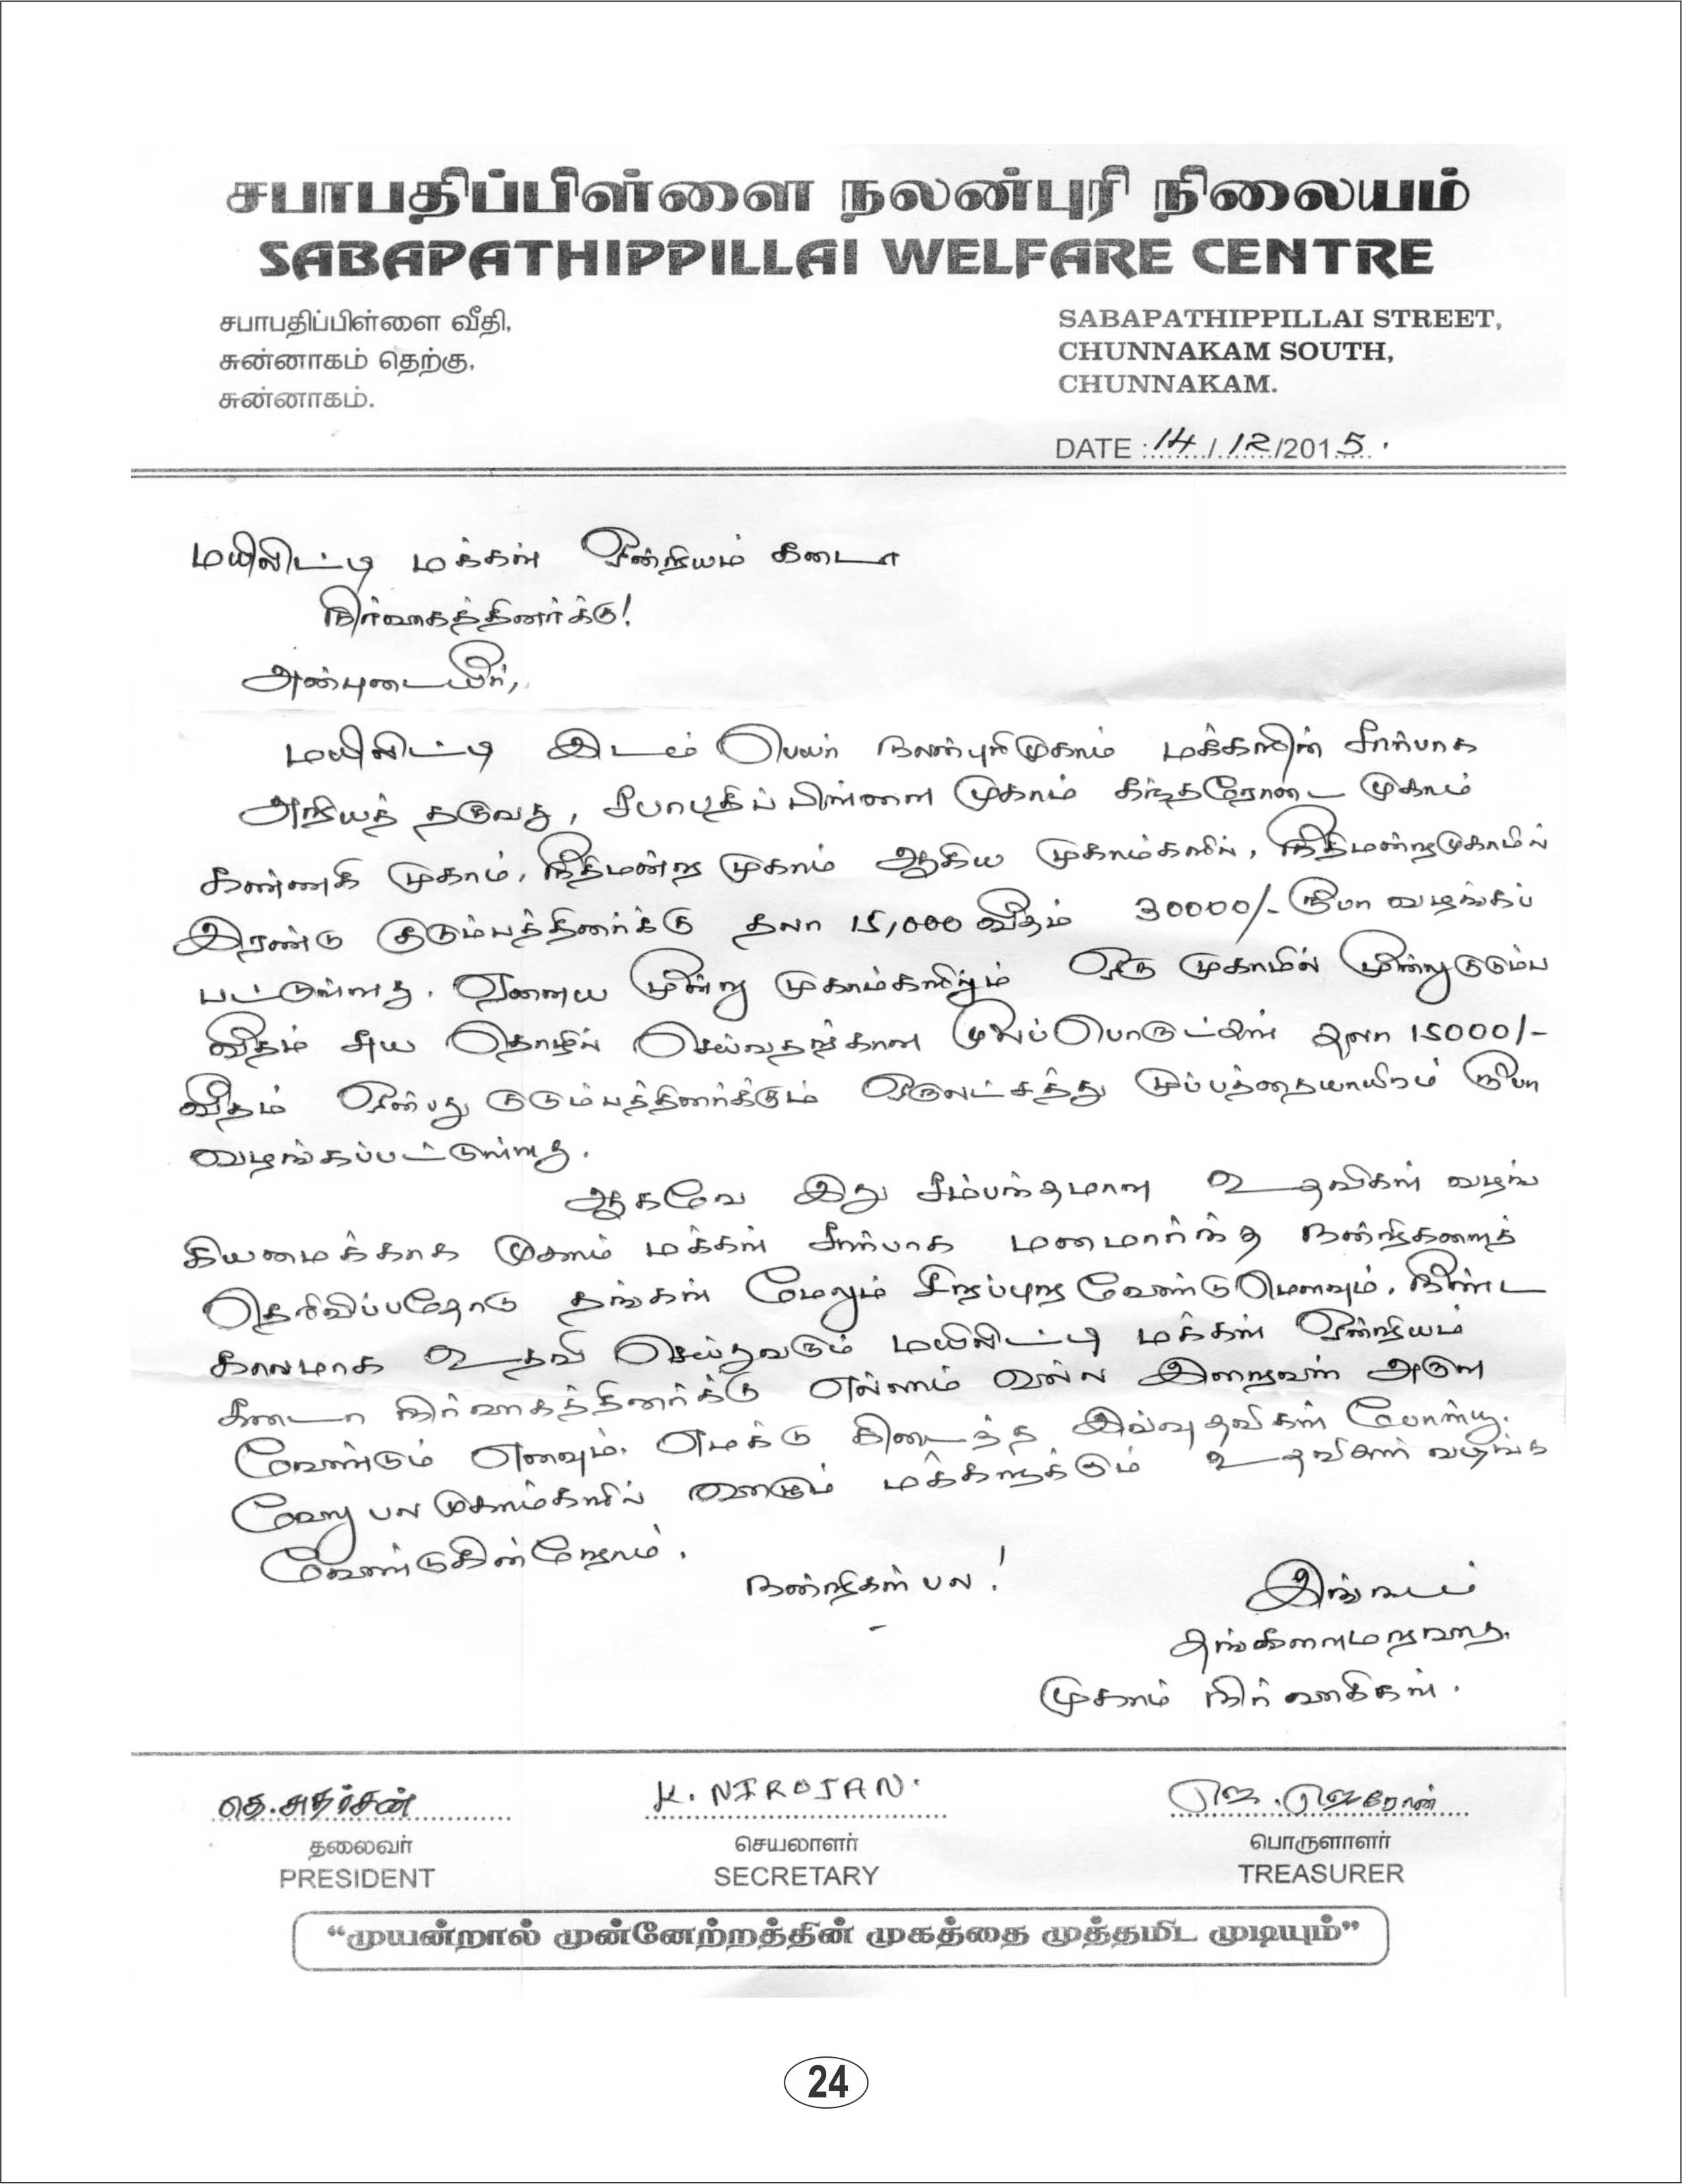 சபாபதிப்பிள்ளை நலன்புரி நிலையம்
SABAPATHIPPILLAI WELFARE CENTRE
சபாபதிப்பிள்ளை வீதி,
சுன்னாகம் தெற்கு,
சுன்னாகம்.
SABAPATHIPPILLAI STREET,
CHUNNAKAM SOUTH,
CHUNNAKAM.
DATE : 14 / 12 /2015.
மயிலிட்டி மக்கள் ஒன்றியம் கனடா
நிர்வாகத்தினர்க்கு!
அன்புடையீர்,
மயிலிட்டி இடம் பெயர் நலன்புரிமுகாம் மக்களின் சார்பாக
அறியத் தருவது, சபாபதிப்பிள்ளை முகாம் கந்தரோடை முகாம்
கண்ணகி முகாம், நீதிமன்ற முகாம் ஆகிய முகாம்களில், நீதிமன்றமுகாமில்
இரண்டு குடும்பத்தினர்க்கு தலா 15,000 வீதம் 30000/- ரூபா வழங்கப்
பட்டுள்ளது. ஏனைய மூன்று முகாம்களிலும் ஒரு முகாமில் மூன்றுகுடும்ப
வீதம் சுய தொழில் செய்வதற்கான மூலப்பொருட்கள் தலா 15000/-
வீதம் ஒன்பது குடும்பத்தினர்க்கும் ஒருலட்சத்து முப்பத்தையாயிரம் ரூபா
வழங்கப்பட்டுள்ளது.
ஆகவே இது சம்பந்தமான உதவிகள் வழங்
கியமைக்காக முகாம் மக்கள் சார்பாக மனமார்ந்த நன்றிகளைத்
தெரிவிப்பதோடு தங்கள் மேலும் சிறப்புற வேண்டுமெனவும், நீண்ட
காலமாக உதவி செய்துவரும் மயிலிட்டி மக்கள் ஒன்றியம்
கனடா நிர்வாகத்தினர்க்கு எல்லாம் வல்ல இறைவன் அருள
வேண்டும் எனவும், எமக்கு கிடைத்த இவ்வுதவிகள் போன்று
வேறு பல முகாம்களில் வாழும் மக்களுக்கும் உதவிகள் வழங்க
வேண்டுகின்றோம்.
நன்றிகள் பல!
இங்ஙனம்
தங்களைமறவாத,
முகாம் நிர்வாகிகள்.
தெ.சுதர்சன்
தலைவர்
PRESIDENT
K. NIROJAN.
செயலாளர்
SECRETARY
ஜெ. ஜெறோன்
பொருளாளர்
TREASURER
“முயன்றால் முன்னேற்றத்தின் முகத்தை முத்தமிட முடியும்”
24